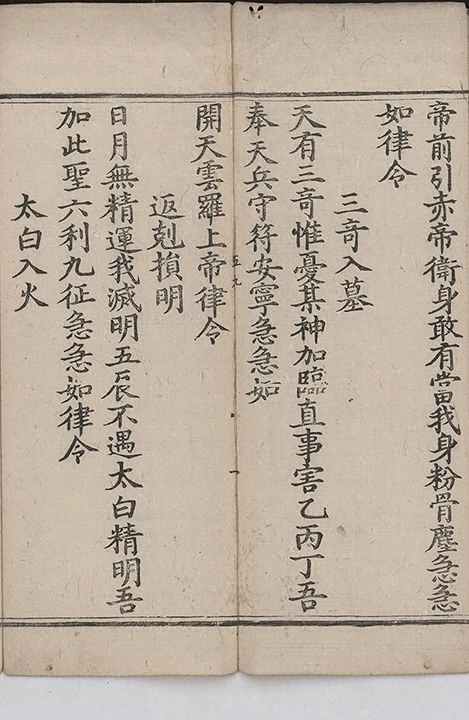 帝前引赤帝衛身敢有當我身粉骨塵急急
如律令
三竒入墓
天有三竒惟憂某神加臨直事害乙丙丁吾
奉天兵守符安寧急急如
五九
開天雲羅上帝律令
返剋損明
日月無精運我滅明五辰不遇太白精明吾
加此聖六利九征急急如律令
太白入火